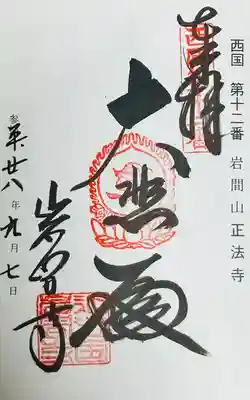 西国 第十二番 岩間山正法寺
奉拝
大悲殿
岩間寺
参平廿八年九月七日